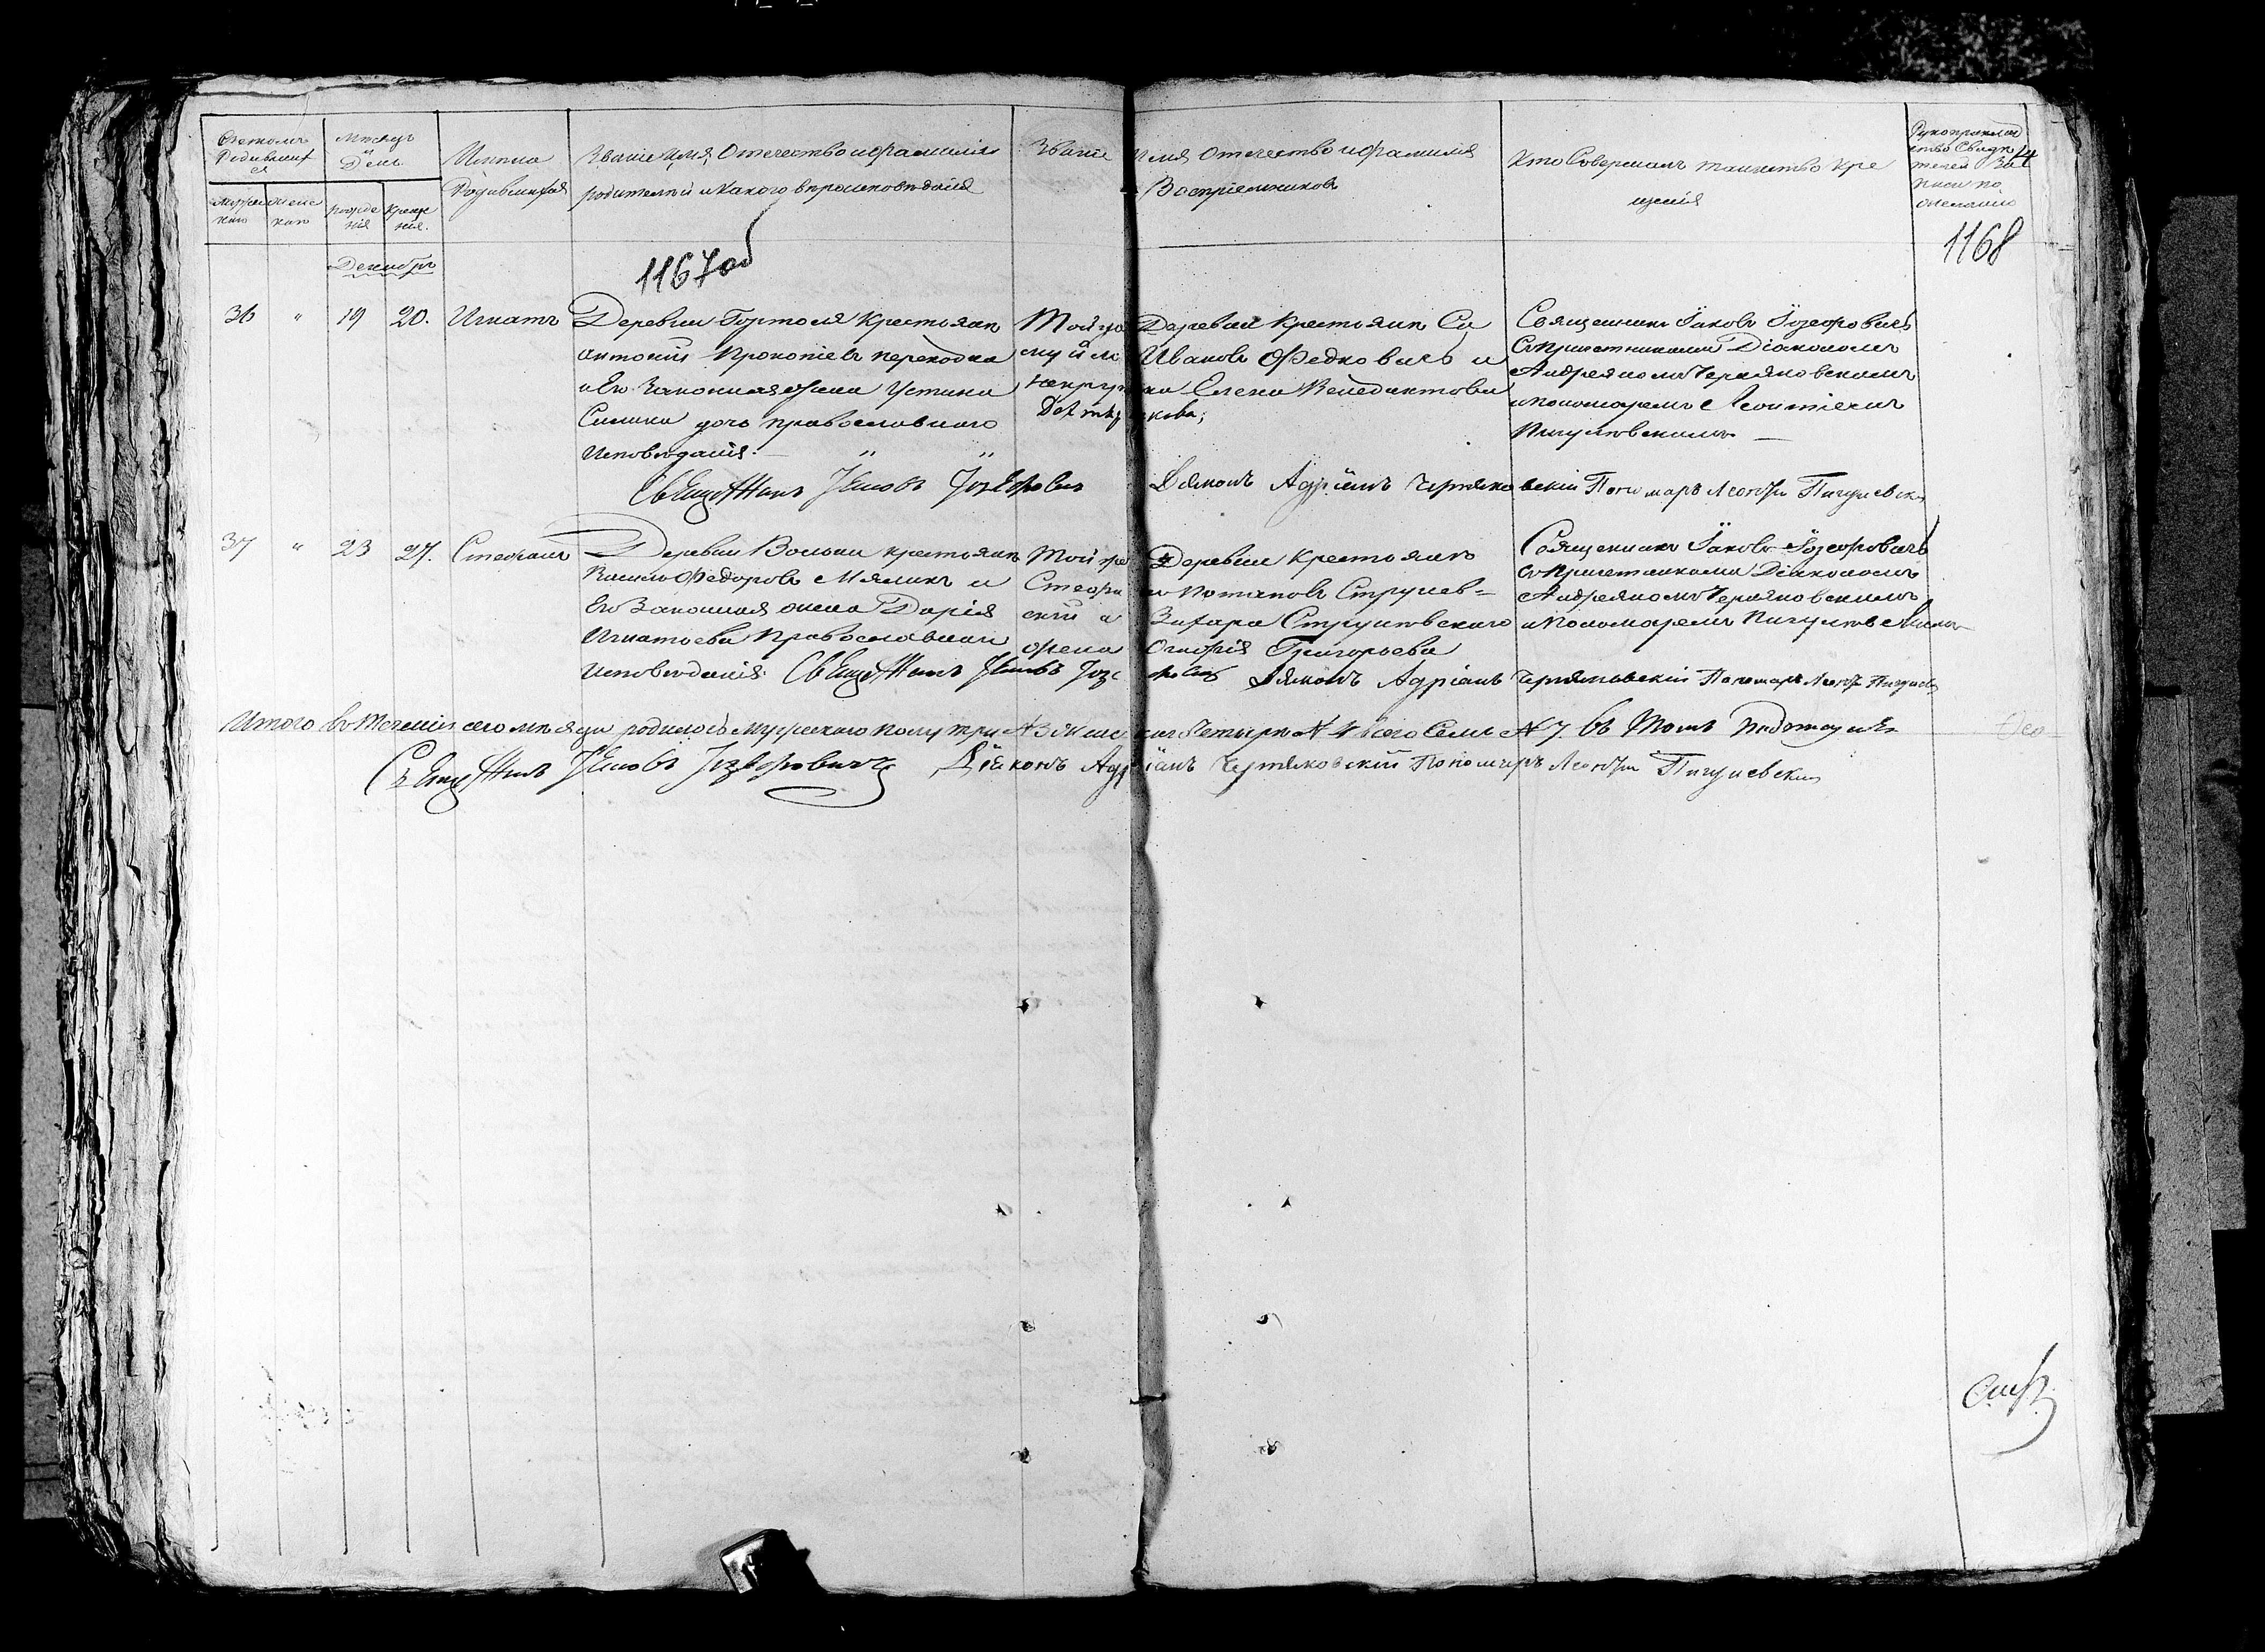 Счетомъ
Родившихся
Мѣсяцъ
и
День
Имена
Родившихся
Званіе Имя, Отечество и фамилія
родителей и Какого вѣроисповѣданія
Званіе Имя Отечество и фамилія
Воспріемниковъ
Кто Совершалъ таинство Кре
щенія
Рукоприклад
ство Свидѣ
телей За
писи по
желанію
Мужес
каго
Женс
каго
рожде
нія
Креще
нія.
14
1167 об
1168
Декабрь
36 " 19 20. Игнатъ
Деревни Гортоля Крестьянъ
Антоній Прокопіевъ
и Его Законная Жена Устина
дочь православнаго
Исповѣданія.
Той же Деревни Крестьянъ
Ивановъ Федковичъ и
Елена Венедиктова
Священникъ Іаковъ Іозефовичъ
съ Причетниками Діакономъ
Андреяномъ Черняковскимъ
и Пономаремъ Леонтіемъ
Пигулевскимъ
Священникъ Іаковъ Іозефовичъ Діаконъ Адріанъ Черняковскій Пономаръ Леонтій Пигулевскій
37 " 23 27. Стефанъ
Деревни Вольки крестьянъ
Василь Федоровъ Мяликъ и
Его Законная жена Дарія
Игнатьева Православнаго
Исповѣданія.
Той же Деревни Крестьянъ
Стефанъ Потаповъ Струнев-
скій и Захара Струневскаго
жена Григорьева
Священникъ Іаковъ Іозефовичъ
съ Причетниками Діакономъ
Андреяномъ Черняковскимъ
и Пономаремъ Пигулевскимъ
Священникъ Іаковъ Іозефовичъ Діаконъ Адріанъ Черняковскій Пономаръ Леонтій Пигулевскій
Итого въ теченіи сего мѣсяца родилось мужескаго полу три №3 женскаго Четыре №4 всего Семь №7. въ томъ
Священникъ Іаковъ Іозефовичъ Діяконъ Адріанъ Черняковскій Пономаръ Леонтій Пигулевскій